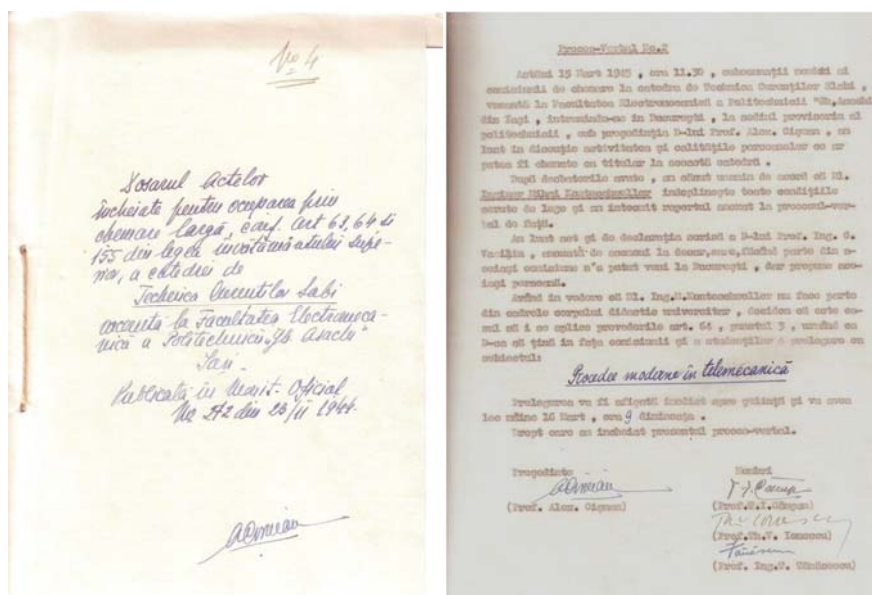 No 4
Dosarul Actelor
încheiate pentru ocuparea prin
chemare largă, conf. art 63, 64 si
155 din legea învătământului supe-
rior, a catedrei de
Technica Curentilor Slabi
vacantă la Facultatea Electromeca-
nică a Politechnicii "Gh. Asachi"
Iasi.
Publicată în Monit. Oficial
No 272 din 1944.
Proces-Verbal No.2
Astăzi 15 Mart 1945 , ora 11.30 , subsemnaţii membri ai
comisiunii de chemare la catedra de Technica Curenţilor Slabi ,
vacantă la Facultatea Electromecanică a Politechnicii "Gh.Asachi
din Iaşi , intrunindu-se in Bucureşti , la sediul provizoriu al
politechnicii , sub preşedinţia D-lui Prof. Alex. Cişman , au
luat in discuţie activitatea şi calităţile persoanelor ce ar
putea fi chemate ca titular la această catedră .
După desbaterile avute , au căzut unanim de acord că Dl.
Inginer Mihai Konteschweller indeplineşte toate condiţiile
cerute de lege şi au intocmit raportul anexat la procesul-ver-
bal de faţă.
Au luat act şi de declaraţia scrisă a D-lui Prof. Ing. C.
Vasiliu , anexată de asemeni la dosar, care, făcând parte din a-
ceiaşi comisiune n'a putut veni la Bucureşti , dar propune ace-
iaşi persoană.
Având in vedere că Dl. Ing.M.Konteschweller nu face parte
din cadrele corpului didactic universitar , decidem că este ca-
zul să i se aplice prevederile art. 64 , punctul 3 , urmând ca
D-sa să ţină in faţa comisiunii şi a studenţilor o prelegere cu
subiectul:
Procedee moderne în telemecanică
Prelegerea va fi afişată imediat spre ştiinţă şi va avea
loc mâine 16 Mart , ora 9 dimineaţa .
Drept care am incheiat prezentul proces-verbal.
Preşedinte
Membri
(Prof. Alex. Cişman)
(Prof.Th.V. Ionescu)
(Prof. Ing.T. Tănăsescu)